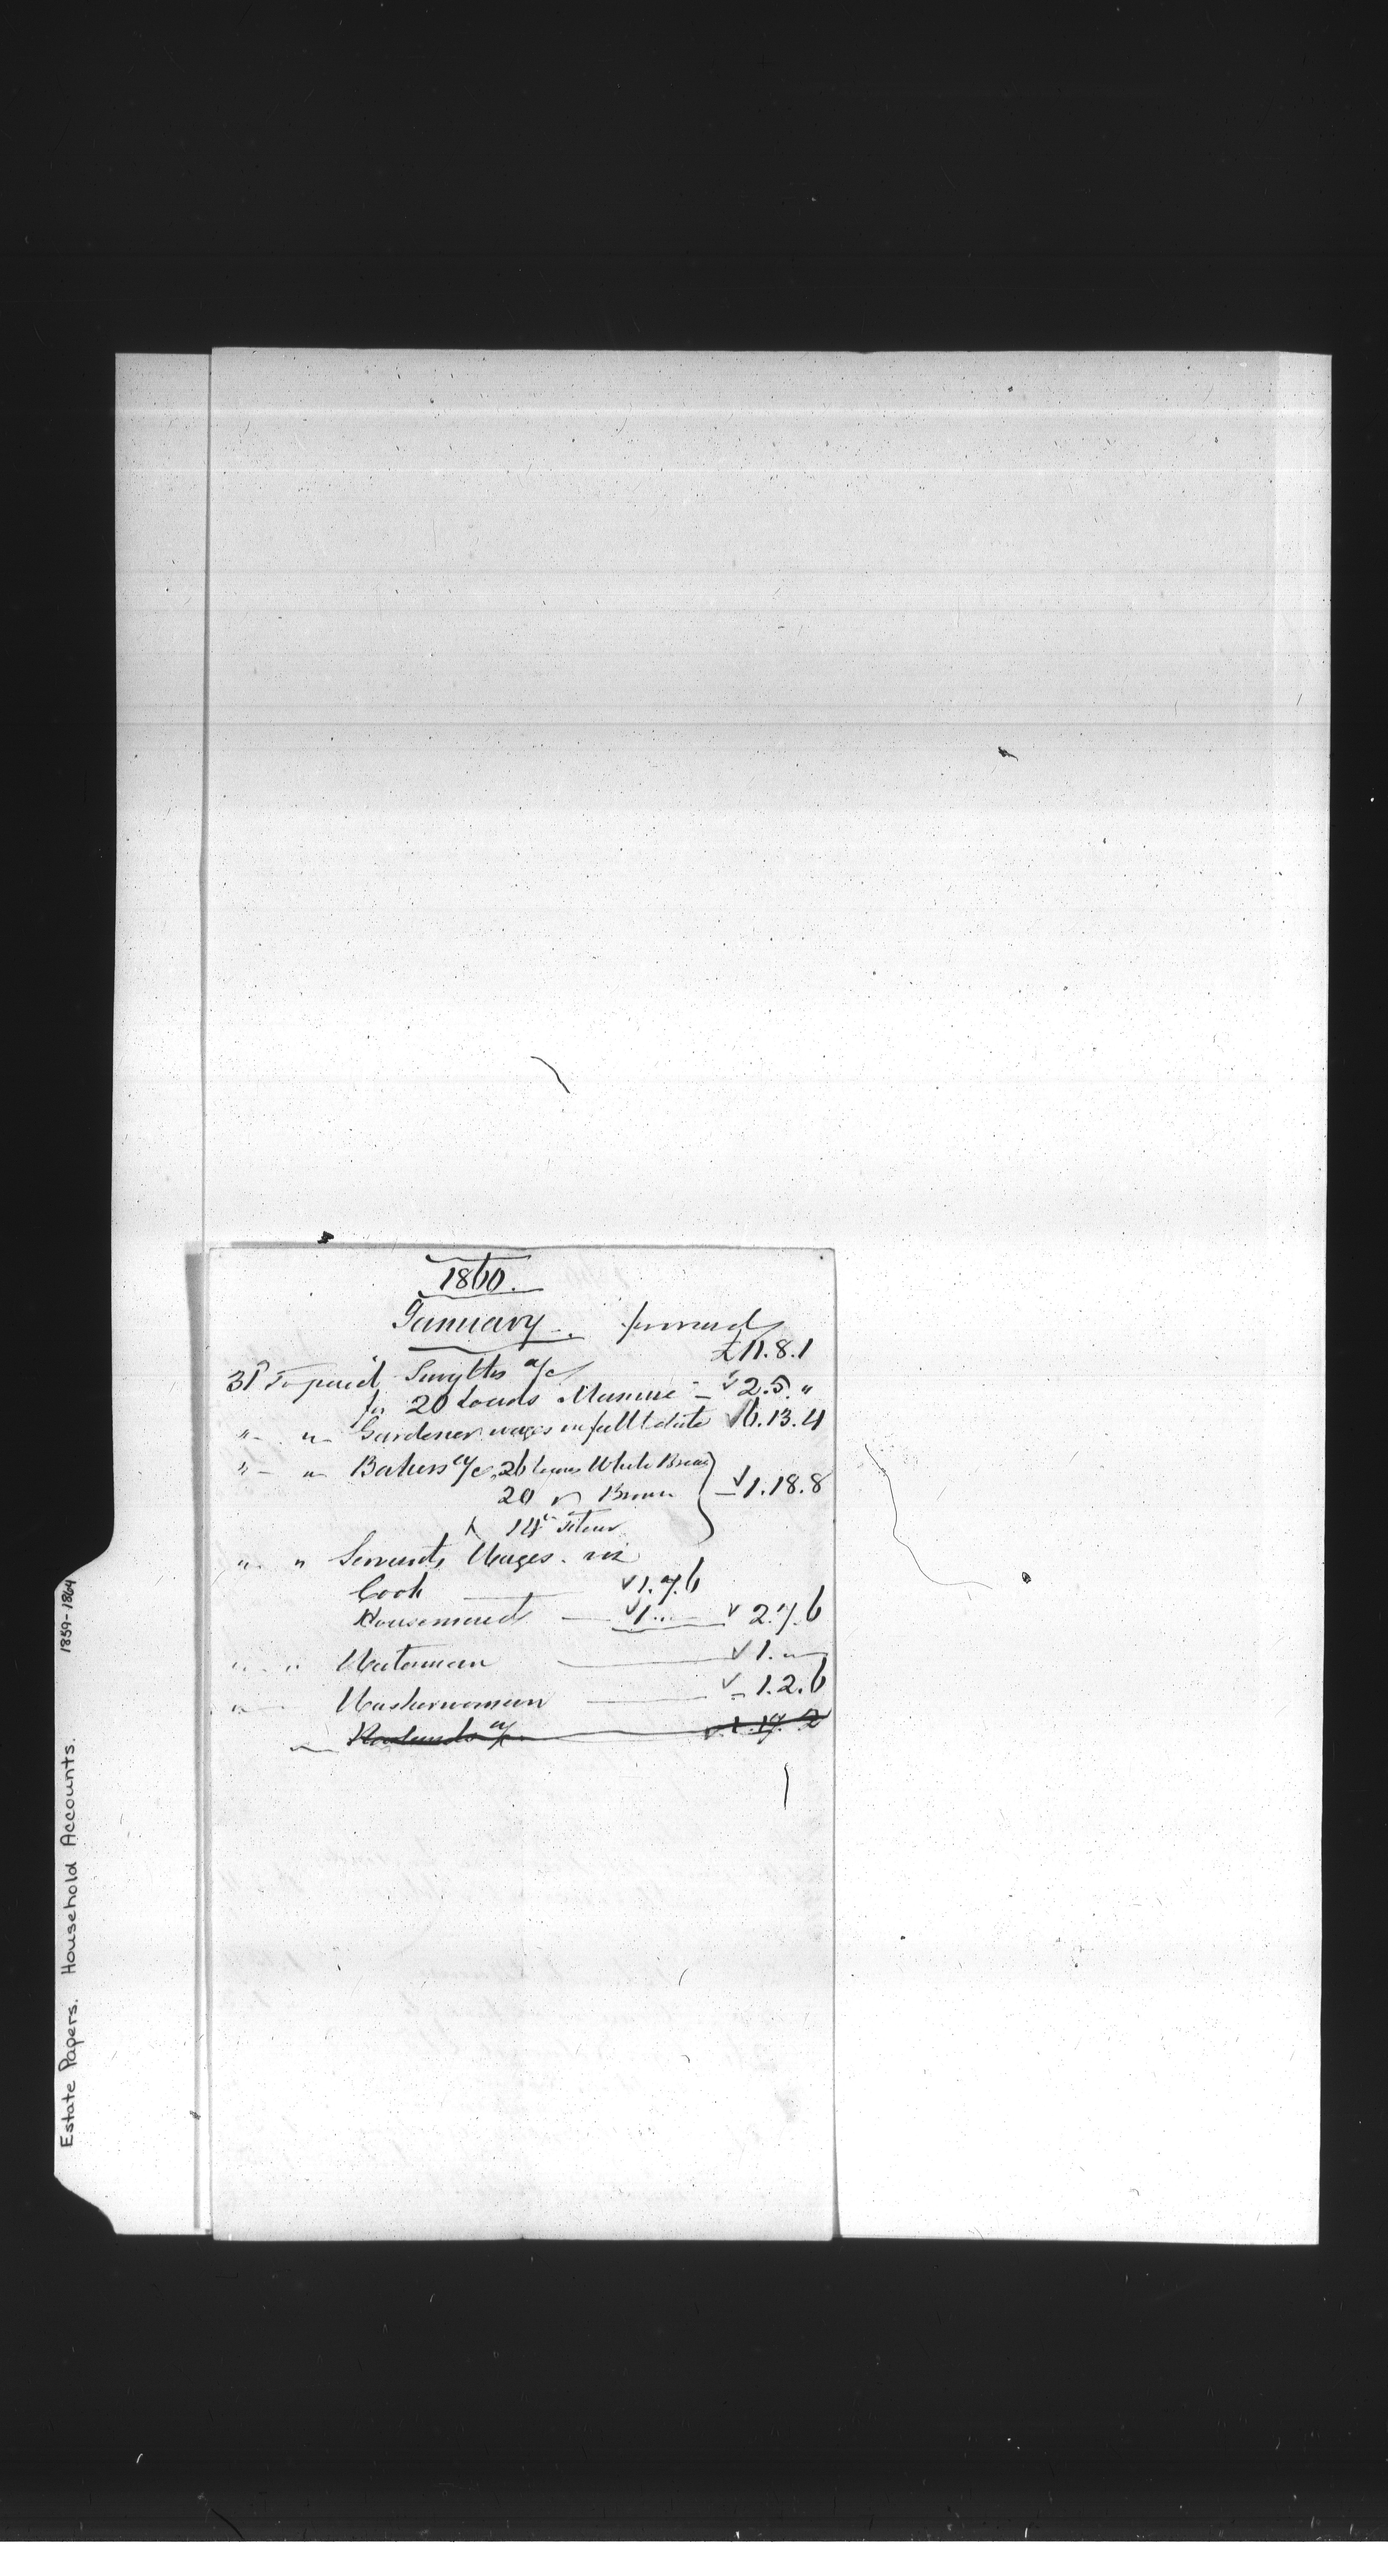 1860.
January. forward
£11.8.1
31st To paid Smyths a/c
for 20 Loads Manure - √ 2.5."
" " Gardener wages in full to date √6.13.4
" " Bakers a/c, 26 loaves White Bread
20 " Brown √1.18.8
& 14 lb Flour
" " Servants Wages. viz
Cook √1.7.6
Housemaid √1.." √ 2.7.6
" " Waterman √1."
" Washerwoman √ 1.2.6
" a/c
Estate Papers. Household Accounts. 1859-1864